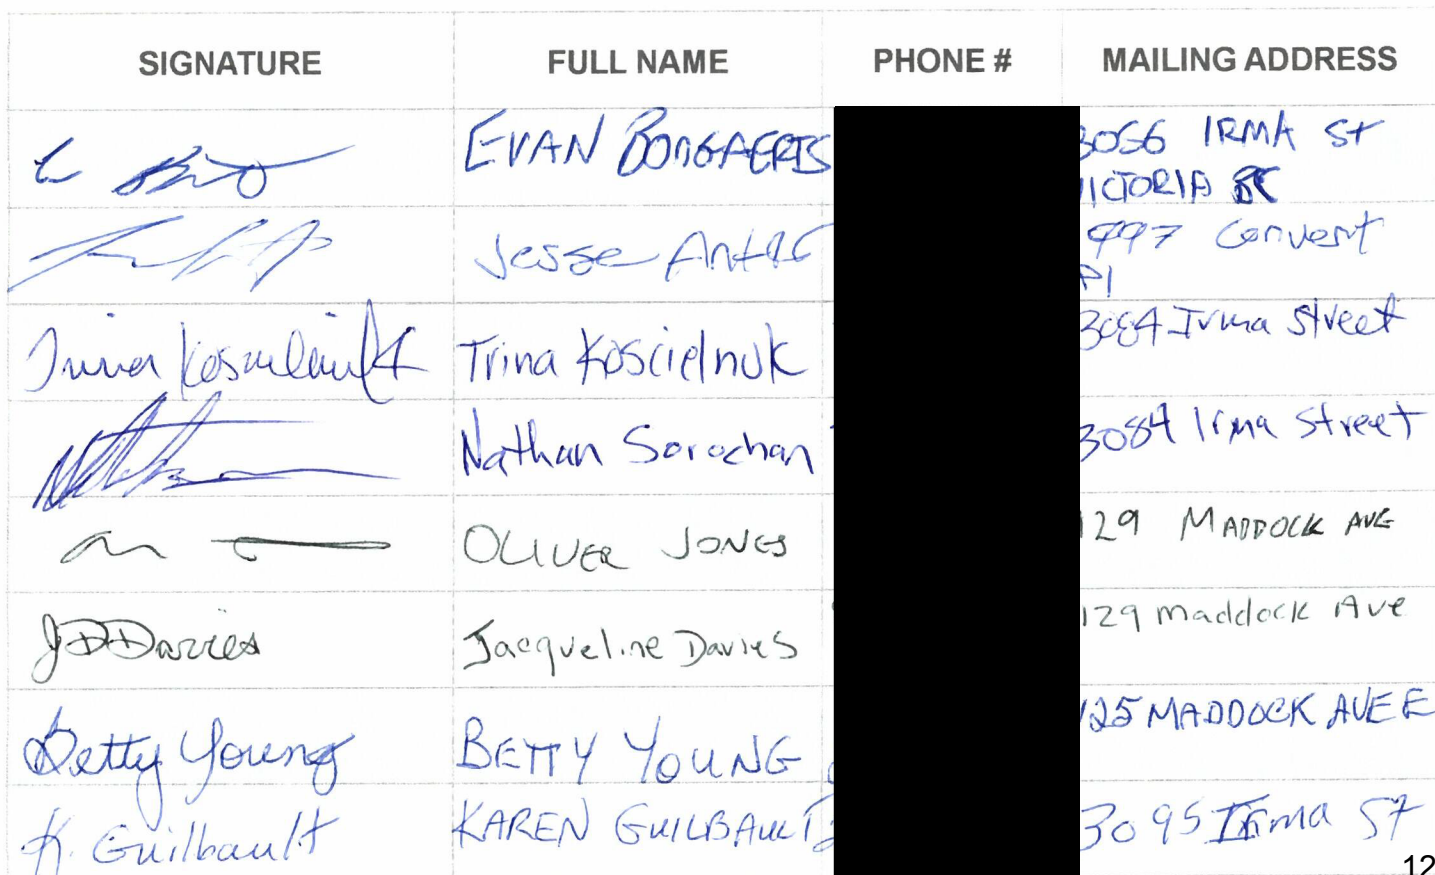 SIGNATURE FULL NAME PHONE # MAILING ADDRESS
EVAN BONGAERTS 3056 IRMA St
VICTORIA BC
Jesse 997 Convent
Pl
Trina Koscielnuk 3084 Irma Street
Nathan Sorochan 3084 Irma Street
OLIVER JONES 129 MADDOCK AVE
JD Davies Jacqueline Davies 129 Maddock Ave
Betty Young BETTY YOUNG 125 MADDOCK AVE E
K. Guilbault KAREN GUILBAULT 3095 Irma St
12